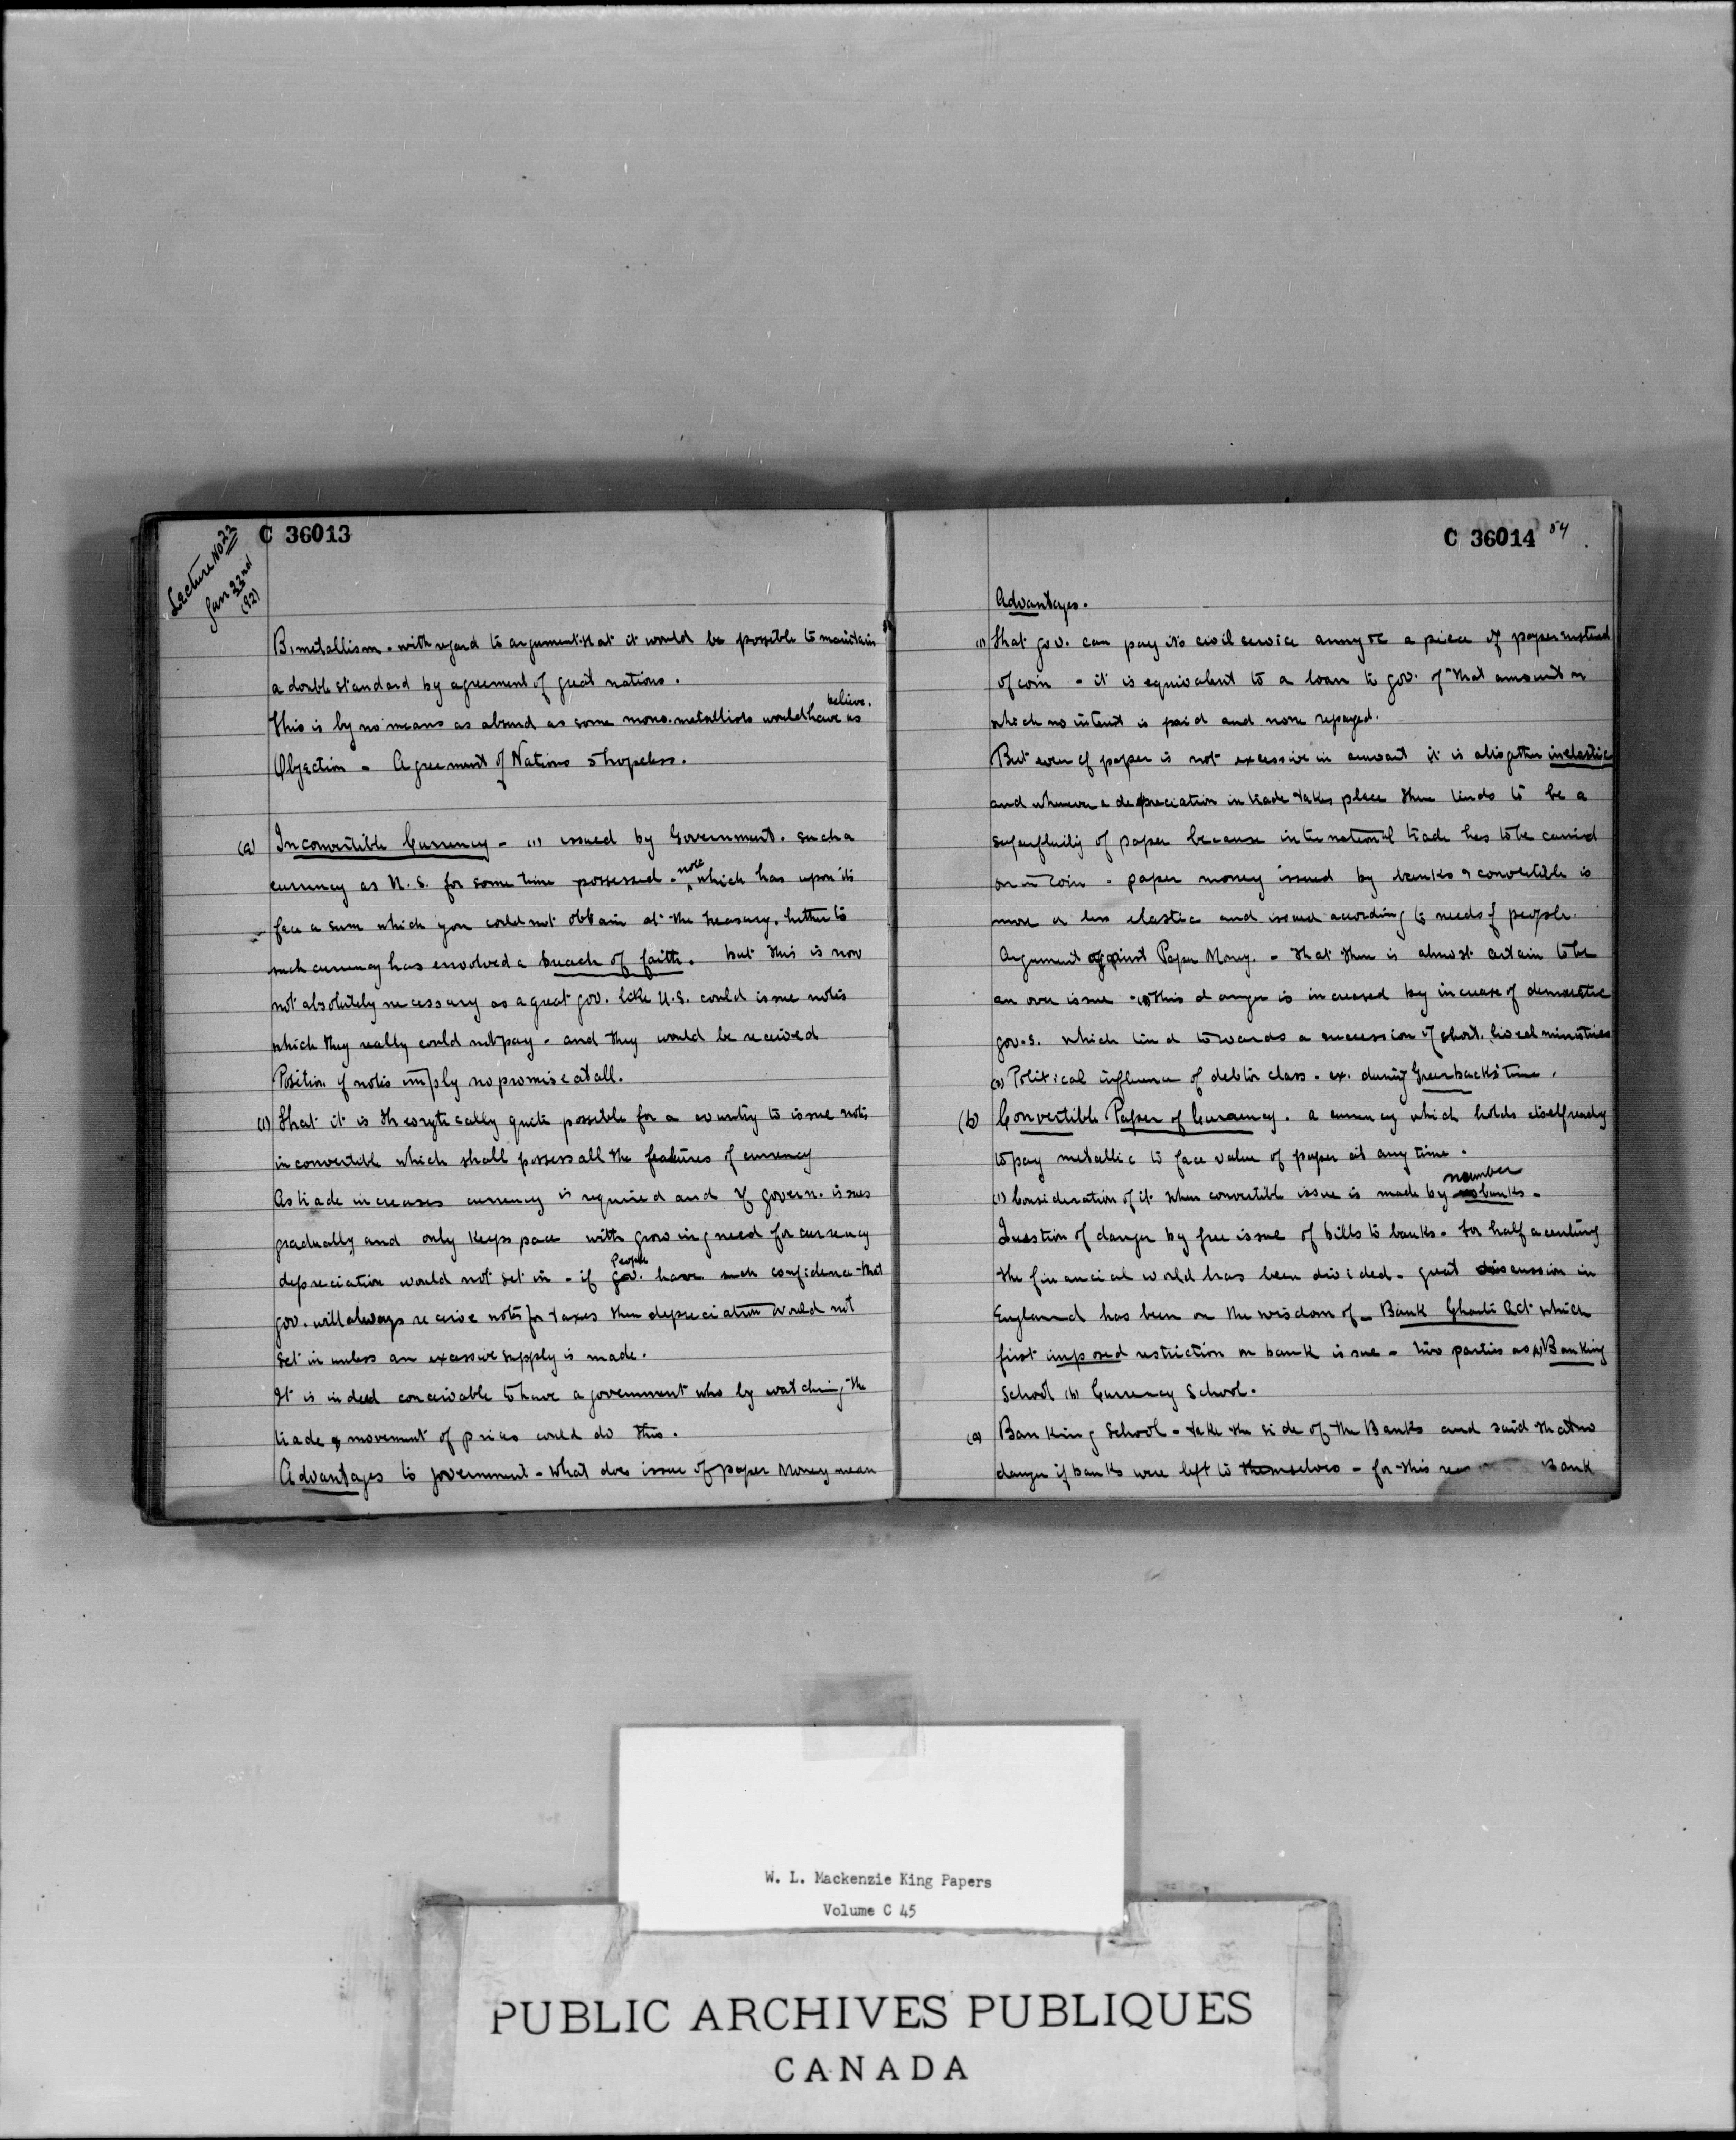 C 36013
Lecture No 22
Jan 22nd
(92)
Bimetallism. with regard to argument that it would be possible to maintain
a double standard by agreement of great nations.
This is by no means as absurd as some mono. metallists would have us believe.
Objection - Agreement of Nations is hopeless.
(a) Inconvertible Currency - (1) issued by Government. such a
currency as U.S. for some time possessed. note which has upon its
face a sum which you could not obtain at the treasury. hitherto
such currency has envolved a breach of faith. but this is now
not absolutely necessary as a great gov. like U.S. could issue notes
which they really could not pay - and they would be received
Position of notes imply no promise at all.
(1) That it is theorytically quite possible for a country to issue notes
inconvertible which shall possess all the features of currency
As trade increases currency is required and if govern. issues
gradually and only keeps pace with growing need for currency
depreciation would not set in - if people have such confidence that
gov. will always receive notes for taxes then depreciation would not
set in unless an excessive supply is made.
It is indeed conceivable to have a government who by watching the
trade & movement of prices could do this.
Advantages to government - What does issue of paper Money mean
C 36014
54
Advantages.
(1) That gov. can pay its civil service army &c a piece of paper instead
of coin - it is equivalent to a loan to gov. of that amount on
which no interest is paid and none repayed.
But even if paper is not excessive in amount it is altogether inelastic
and whenever a depreciation in trade takes place there tends to be a
superfluity of paper because international trade has to be carried
on in coin - paper money issued by banks & convertible is
more or less elastic and issued acording to needs of people.
Argument against Paper Money. - That there is almost certain to be
an over issue - (1) this danger is increased by increase of democratic
gov.s. which tend towards a succession of short lived ministries
(2) Political influence of debtor class. ex. during Greenbacks time.
(b) Convertible Paper of Currency. a currency which holds itself ready
to pay metallic to face value of paper at any time.
(1) Consideration of it when convertible issue is made by number banks -
Question of danger by free issue of bills to banks. For half a century
the financial world has been divided - great discussion in
England has been on the wisdom of - Bank Charter Act which
first imposed restriction on bank issue - two parties as (a) Banking
School (b) Currency School.
(a) Banking School - take the side of the Banks and said that no
danger if banks were left to themselves - for this Bank
W. L. Mackenzie King Papers
Volume C 45
PUBLIC ARCHIVES PUBLIQUES
CANADA